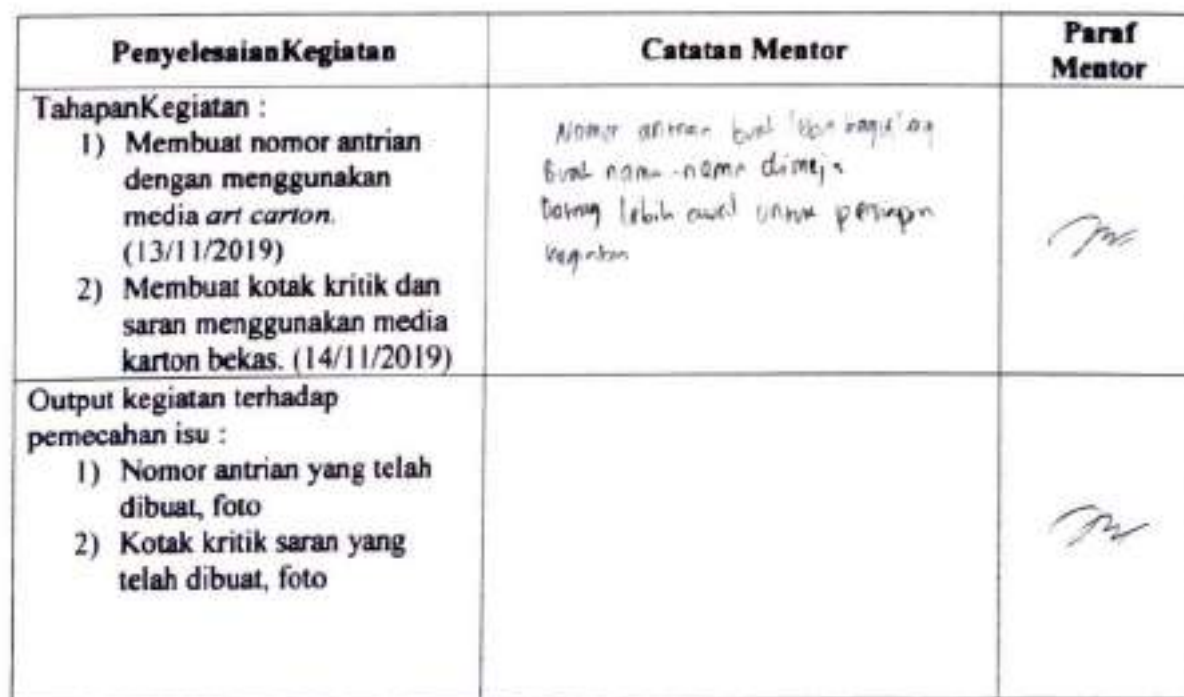 PenyelesaianKegiatan
Catatan Mentor
Paraf
Mentor
TahapanKegiatan :
1) Membuat nomor antrian
dengan menggunakan
media art carton.
(13/11/2019)
2) Membuat kotak kritik dan
saran menggunakan media
karton bekas. (14/11/2019)
Nomor antrian buat
Buat nama-nama dimeja
Datang lebih awal untuk
kegiatan
Output kegiatan terhadap
pemecahan isu :
1) Nomor antrian yang telah
dibuat, foto
2) Kotak kritik saran yang
telah dibuat, foto